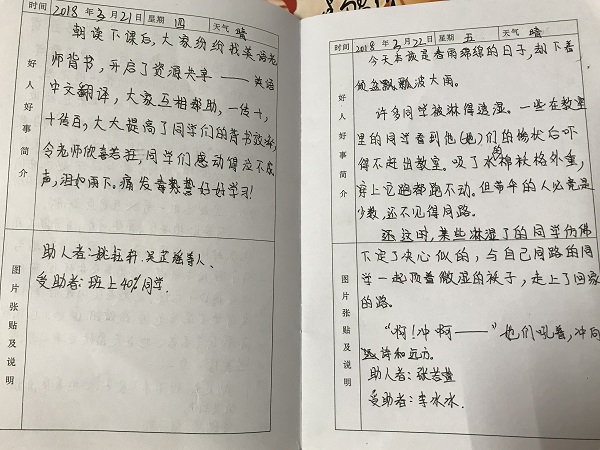 时间 2018年3月21日 星期 四 天气 晴
朝读下课后,大家纷纷找英语老
师背书,开启了资源共享——英语
中文翻译,大家互相帮助,一传十,
十传百,大大提高了同学们的背书效率,
令老师欣喜若狂,同学们感动得泣不成
声,泪如雨下。痛发毒誓好好学习!
好人好事简介
助人者:姚
受助者:班上40%同学.
图片张贴及说明
时间 2018年3月22日 星期 五 天气 晴
今天本该是春雨绵绵的日子,却下着
倾盆瓢泼大雨。
许多同学被淋得透湿。一些在教室
里的同学看到他(她)们的惨状后吓
得不赶出教室。吸了水的棉袄格外重,
穿上它跑都跑不动。但带伞的人必竟是
少数,还不见得同路。
好人好事简介
这时,某些淋湿了的同学仿佛
下定了决心似的,与自己同路的同
学一起顶着微湿的袄子,走上了回家
的路。
“啊!冲啊——”她们吼着,冲向
远诗和远方。
助人者:张若萱
受助者:李冰冰.
图片张贴及说明